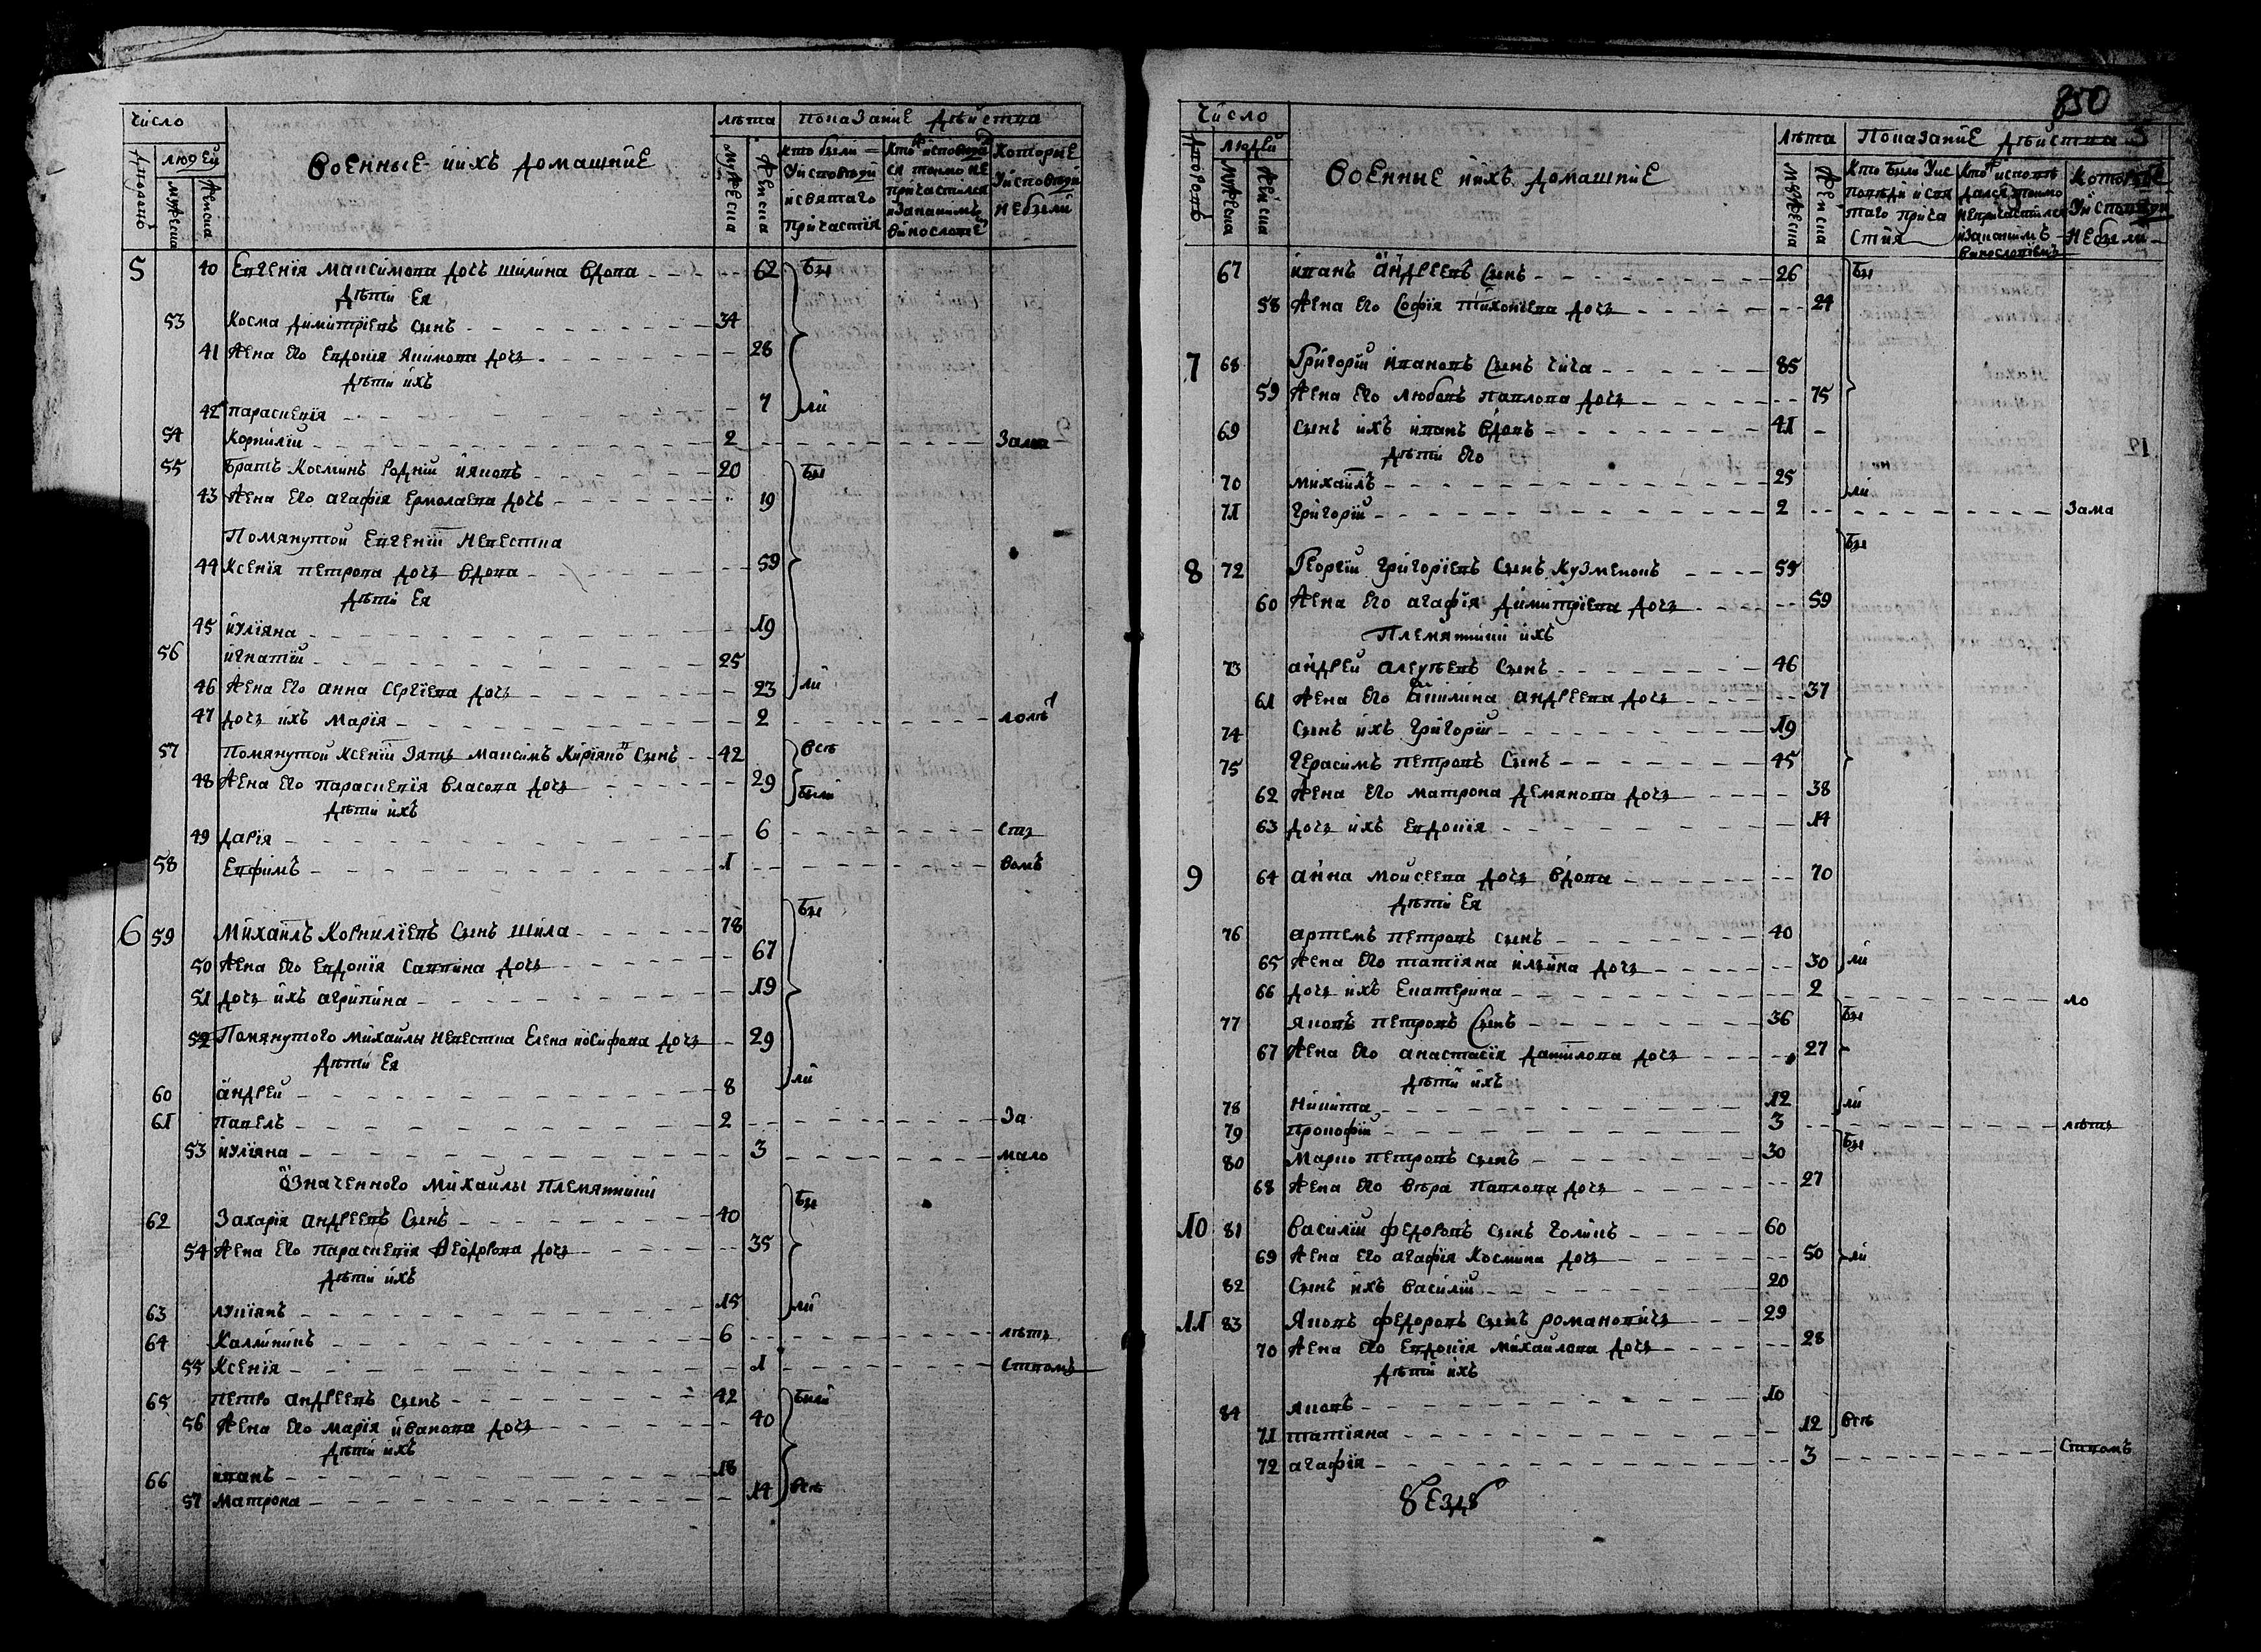 Число
лѣта показанїе дѣйства
дворовъ
людей
мужеска
женска
военные ійхъ домашнїе
мужеска
женска
кто были
уисповѣди
исвятаго
причастїя
кто исповѣда
ся токмо не
причастился
изакакимъ
винословіе
которые
уисповѣди
небыли
5 40 Евгенїя Максимова дочь шилина вдова 62 бы
Дѣти Ея
53 Косма Димитрїевъ сынъ 34
41 жена его Евдокїя Якимова дочь 28
дѣти ихъ
42 параскевїя 7 ли
54 Корнилїй 2 Зама
55 Братъ Косминъ родній Ияковъ 20 бы
43 жена его агафїя Ермолаева дочь 19
Помянутой Евгенїи невестка
44 Ксенїя петрова дочь вдова 59
Дѣти Ея
45 иулїяна 19
56 игнатїй 25
46 жена его анна Сергїева дочь 23 ли
47 дочь ихъ Марїя 2 лолѣ
57 Помянутой Ксенїи Зять Максимъ Кирїяновъ Сынъ 42 всѣ
48 жена его параскевїя власова дочь 29 были
дѣти ихъ
49 дарїя 6 стъ
58 Евфимъ 1 вомъ
6 59 Михаилъ Корнилїевъ Сынъ шила 78 бы
50 жена его Евдокїя Саввина дочь 67
51 дочь ихъ агрипина 19
52 Помянутого михайлы невестка Елена иосифова дочь 29
Дѣти Ея
60 андрей 8 ли
61 павелъ 2 За
53 иулїяна 3 мало
означенного Михайлы племянники
62 Захарїя андреевъ Сынъ 40 бы
54 жена его параскевїя Феодорова дочь 35
дѣти ихъ
63 лукїянъ 15 ли
64 Калиникъ 6 лѣтъ
55 Ксенїя 1 ствомъ
65 петро андреевъ сынъ 42 были
56 жена его марїя иванова дочь 40
дѣти ихъ
66 иванъ 18
57 матрона 14 всѣ
850
Число
лѣта Показанїе дѣйства
дворовъ
людей
мужеска
женска
военные ийхъ домашнїе
мужеска
женска
кто были уис
повѣди исвя
таго прича
стїя
кто исповѣ
дался токмо
непричастился
изакакимъ
винословіемъ
которые
уисповѣди
небыли
67 иванъ андреевъ Сынъ 26 бы
58 жена его Софїя тихонїева дочь 24
7 68 Григорїй ивановъ Сынъ чича 85
59 жена его любовъ павлова дочь 75
69 сынъ ихъ иванъ вдовъ 41
дѣти его
70 михаилъ 25 ли
71 григорїй 2 Зама
бы
8 72 Георгїй григорїевъ Сынъ Кузменокъ 55
60 жена его агафїя Димитрїева дочь 59
Племянники ихъ
73 андрей алеуѣевъ Сынъ 46
61 жена его акилина андреева дочь 37
74 Сынъ ихъ григорїй 19
75 герасимъ петровъ Сынъ 45
62 жена его матрона демянова дочь 38
63 дочь ихъ Евдокїя 14
9 64 анна мойсеева дочь вдова 70
дѣти Ея
76 артемъ петровъ сынъ 40
65 жена его татїяна ильина дочь 30 ли
66 дочь ихъ Екатерина 2 ло
77 яковъ петровъ Сынъ 36 бы
67 жена его анастасїя данилова дочь 27
дѣти ихъ
78 никита 12 ли
79 прокофїй 3 лѣтъ
80 Марко петровъ сынъ 30 бы
68 жена его вѣра павлова дочь 27
10 81 василїй федоровъ сынъ голикъ 60
69 жена его агафїя Космина дочь 50 ли
82 Сынъ ихъ василїй 20
11 83 Яковъ федоровъ сынъ романовичъ 29
70 жена его Евдокїя михайлова дочь 28
дѣти ихъ
84 яковъ 10
71 татїяна 12 всѣ
72 агафїя 3 ствомъ